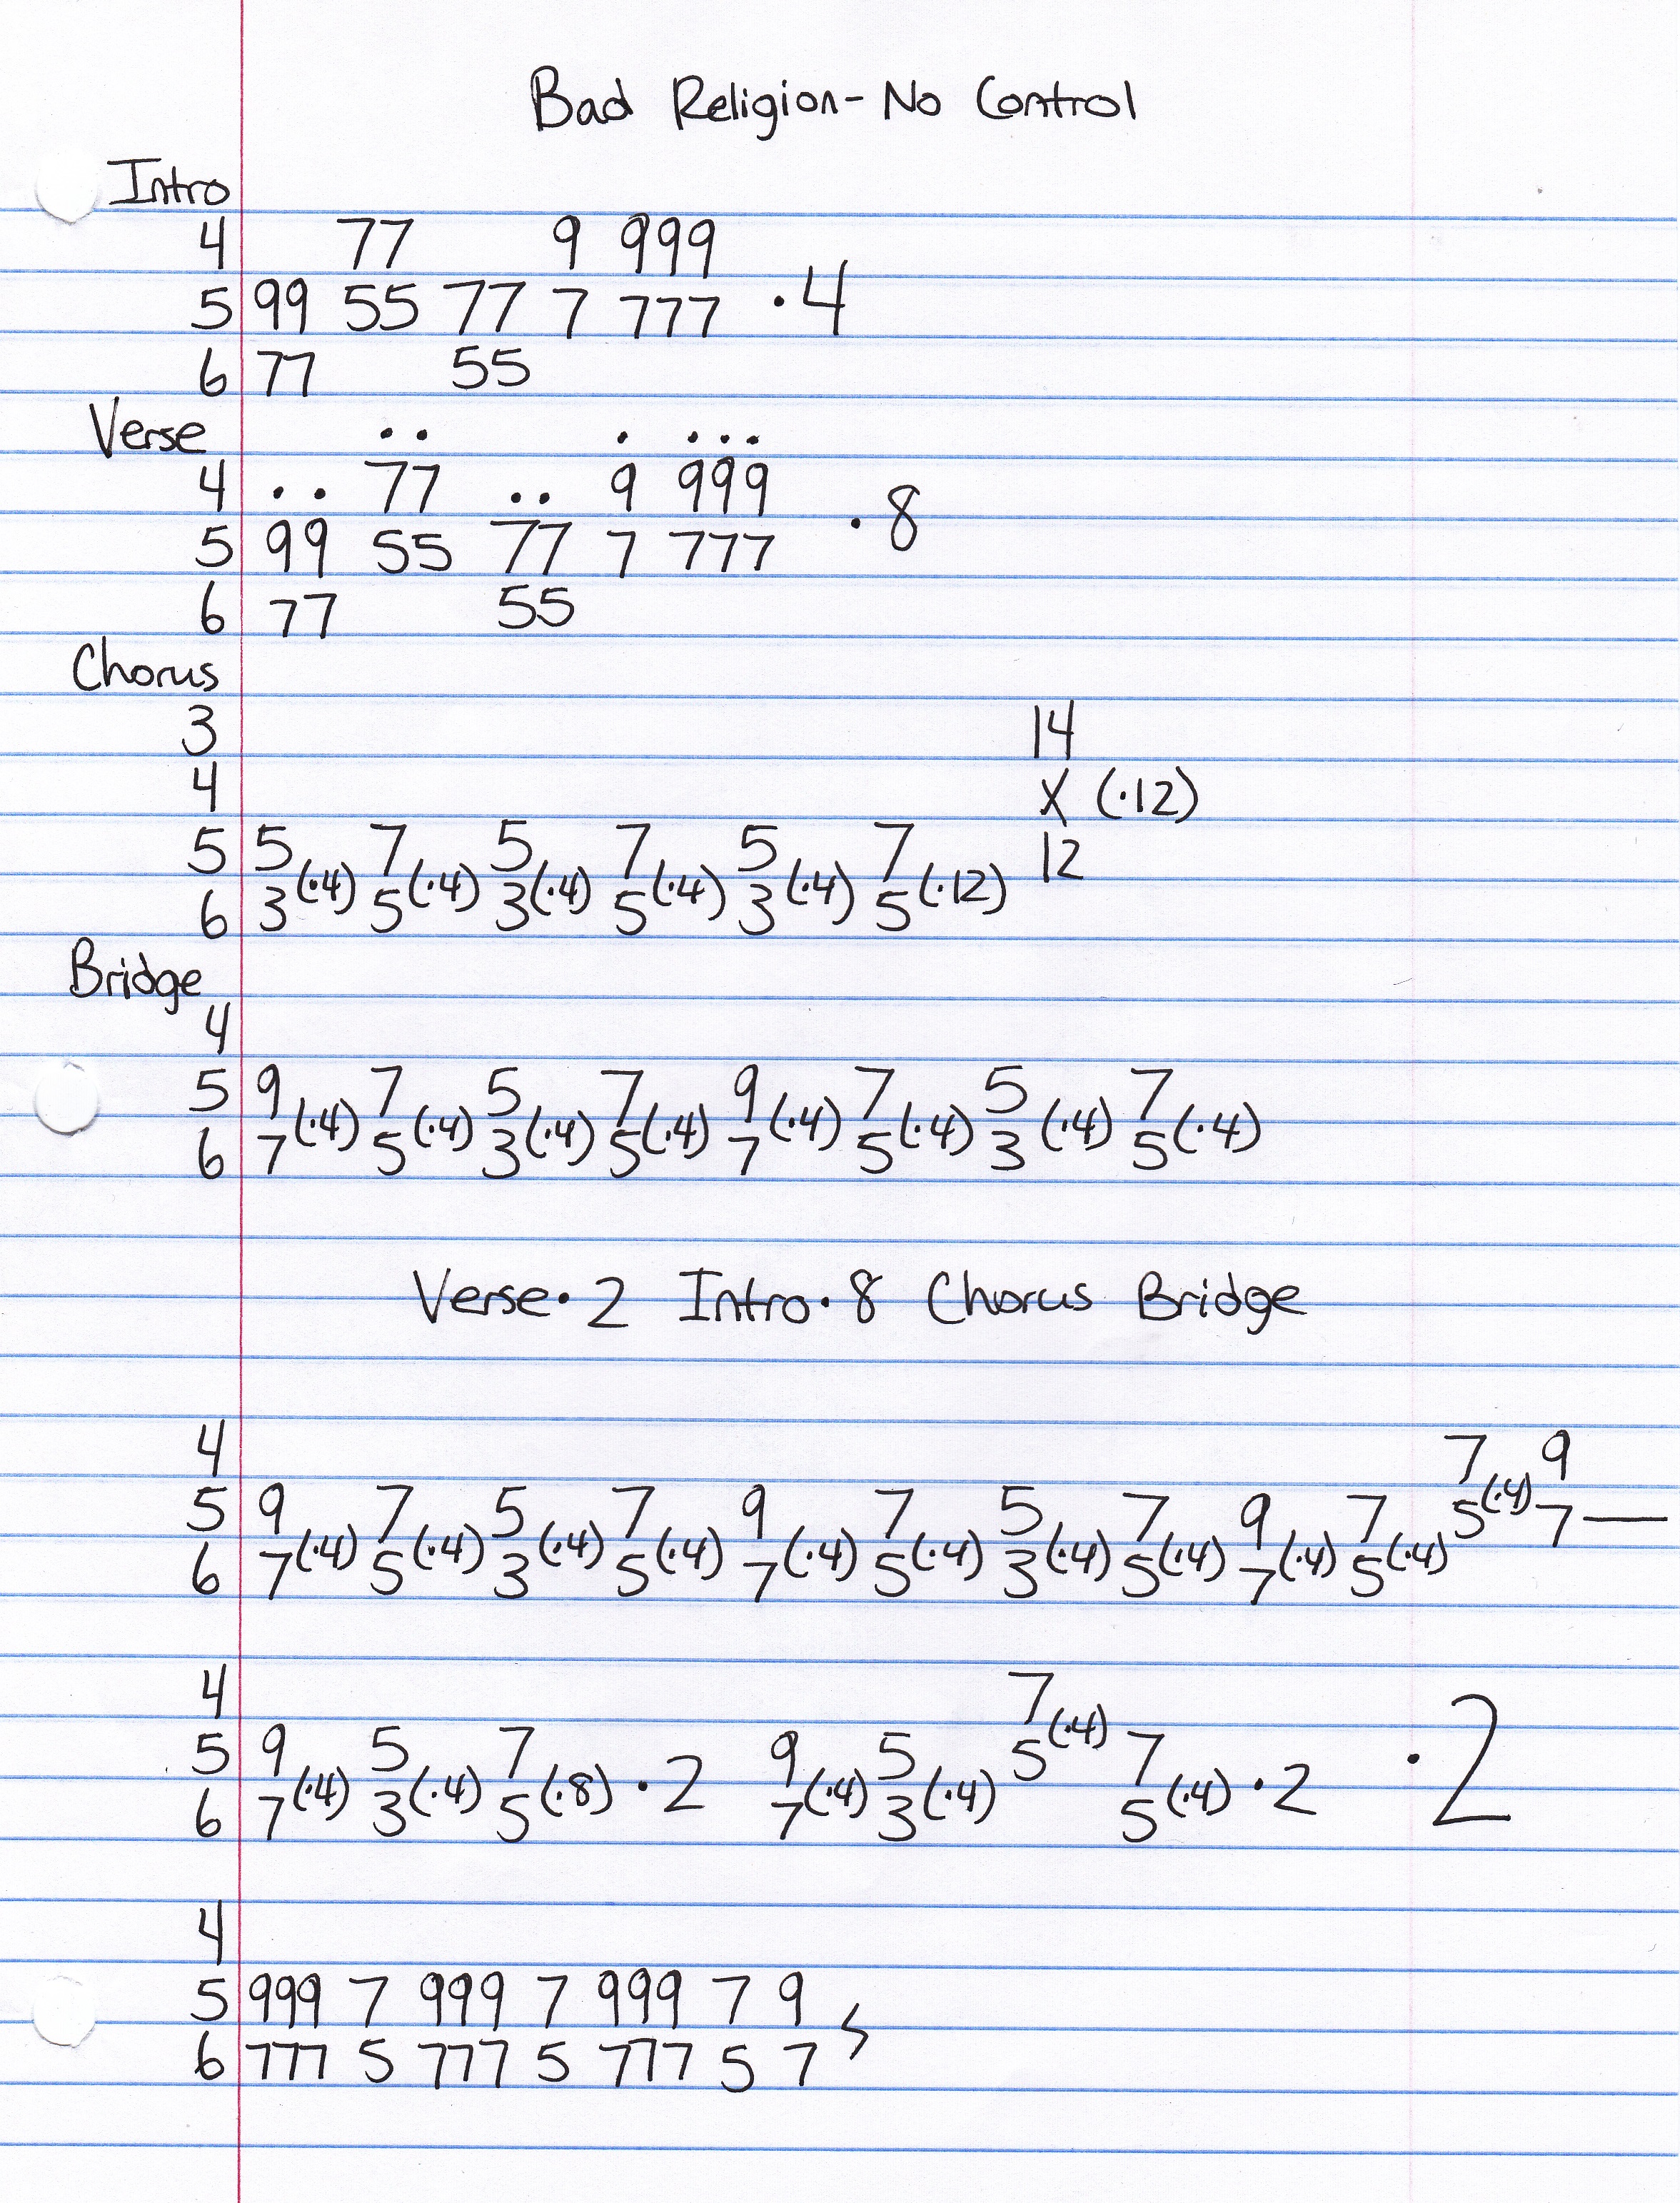 Bad Religion - No Control
Intro
4 77 9 999
5 99 55 77 7 777 ·4
6 77 55
Verse ·· · ···
4 ·· 77 ·· 9 999 ·8
5 99 55 77 7 777
6 77 55
Chorus
3 14
4 X (·12)
5 5 7 5 7 5 7 12
(·4) (·4) (·4) (·4) (·4) (·12)
6 3 5 3 5 3 5
Bridge
4
5 9 7 5 7 9 7 5 7
(·4) (·4) (·4) (·4) (·4) (·4) (·4) (·4)
6 7 5 3 5 7 5 3 5
Verse·2 Intro·8 Chorus Bridge
4 7 9
5 9 7 5 7 9 7 5 7 9 7 5 (·4) 7 —
(·4) (·4) (·4) (·4) (·4) (·4) (·4) (·4) (·4) (·4)
6 7 5 3 5 7 5 3 5 7 5
4 7 (·4)
5 9 5 7 9 5 5 7 ·2
(·4) (·4) (·8) ·2 (·4) (·4) (·4) ·2
6 7 3 5 7 3 5
4
5 999 7 999 7 999 7 9
6 777 5 777 5 777 5 7